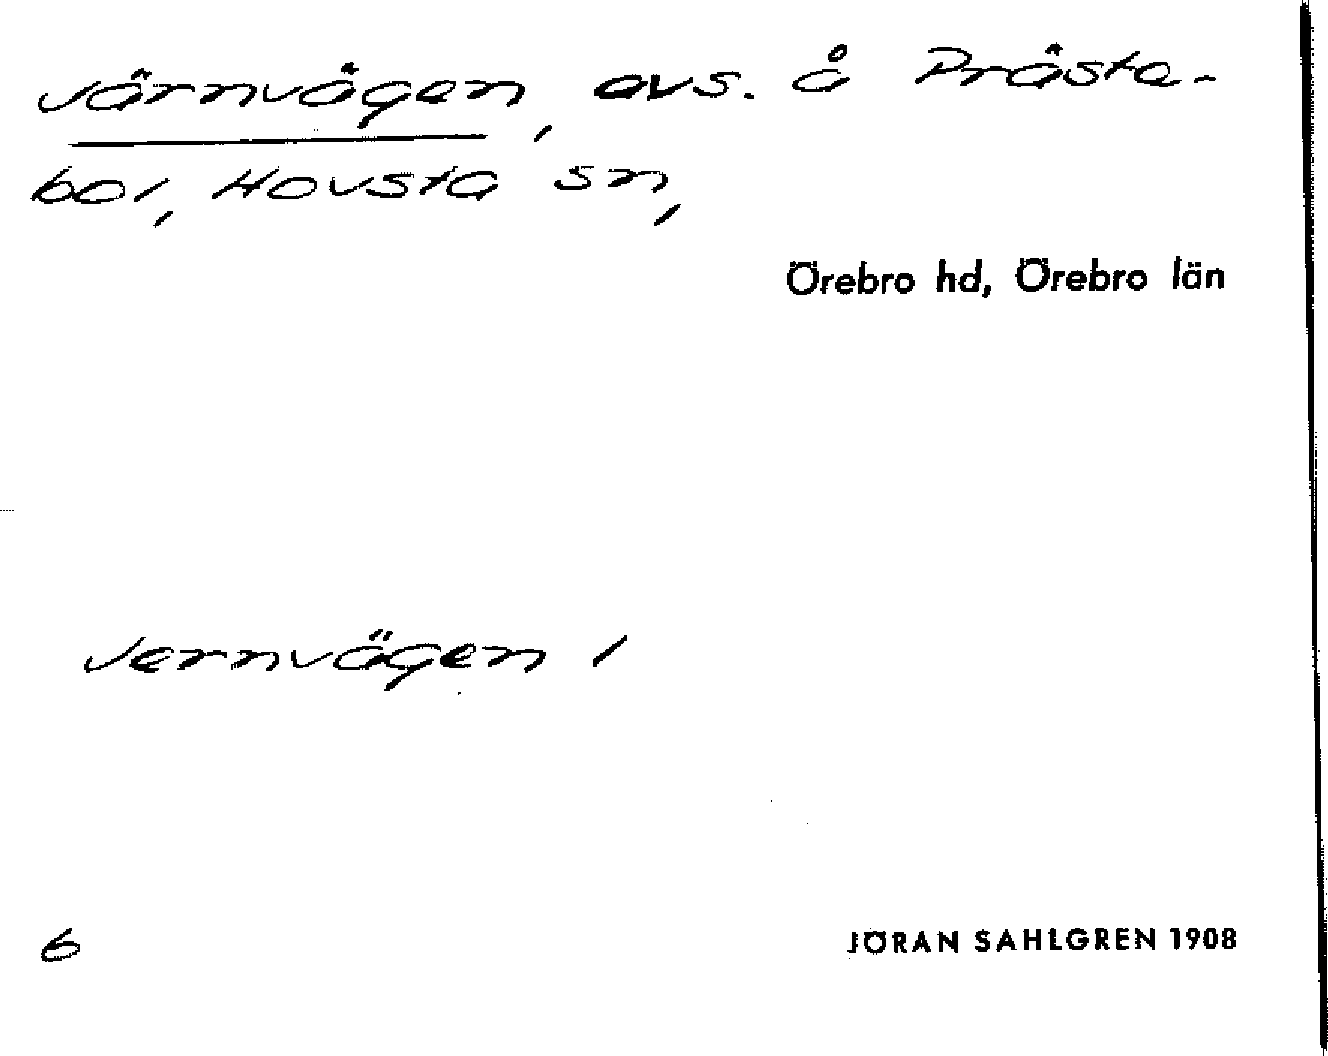 Järnvägen, avs. å Präste-
bol, Hovsta sn,
Örebro hd, Örebro län
Jernvägen 1
6
JÖRAN SAHLGREN 1908